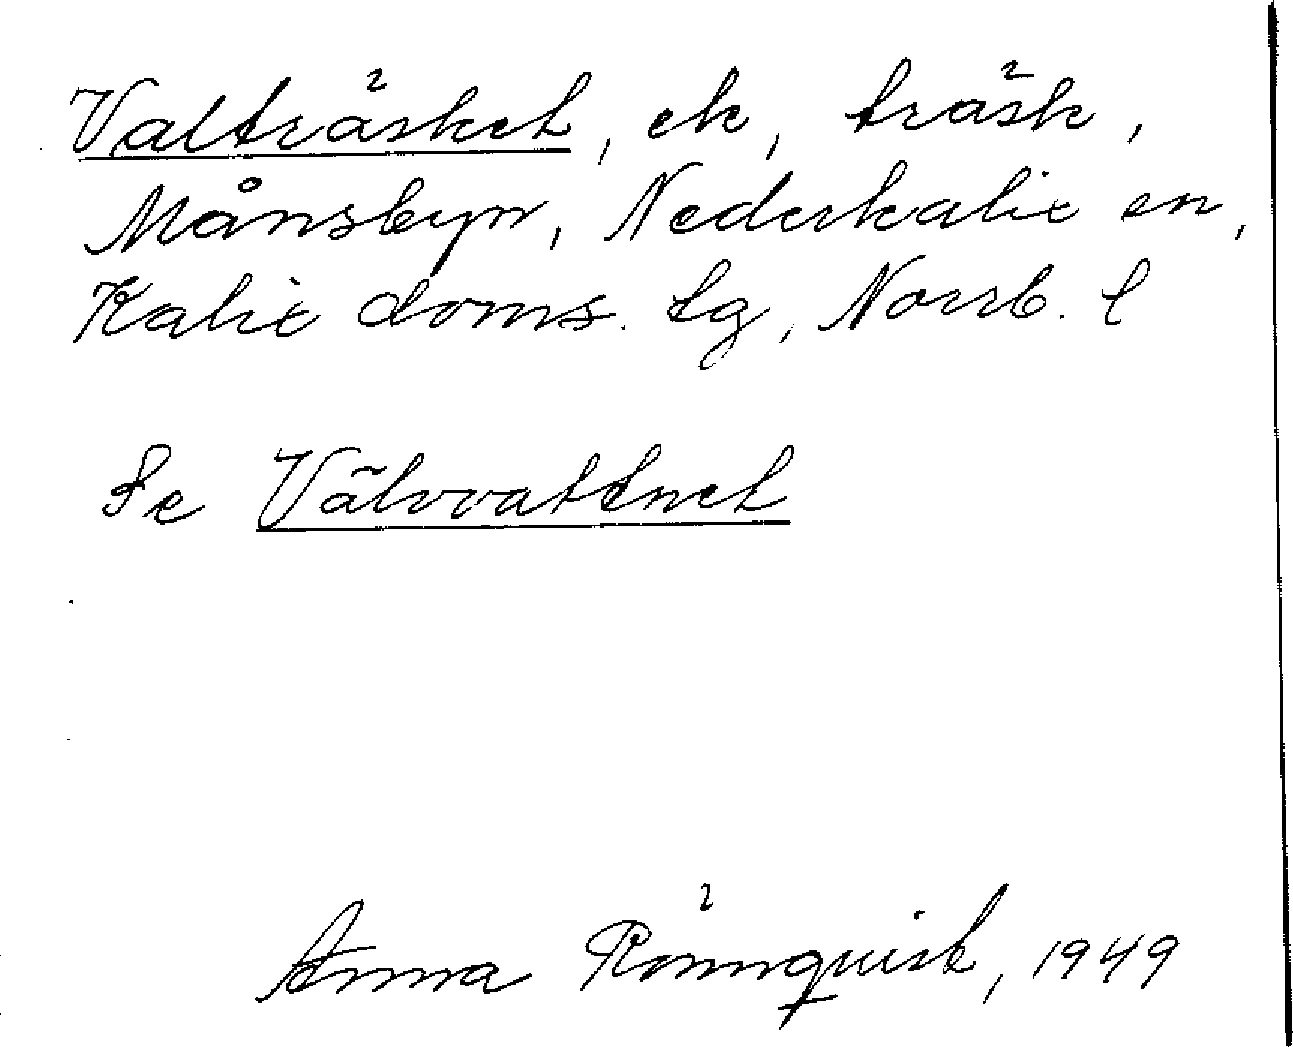 Valträsket, ek, träsk,
Månsbyn, Nederkalix sn,
Kalix doms. tg, Norrb. l
Se Välvvattnet
Anna Rönnquist, 1949